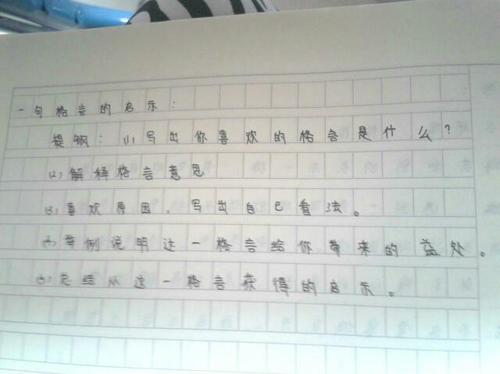 一句格言的启示：
提纲：(1)写出你喜欢的格言是什么？
(2)解释格言意思
(3)喜欢原因，写出自己看法。
(4)举例说明这一格言给你带来的益处。
(5)总结从这一格言获得的启示。